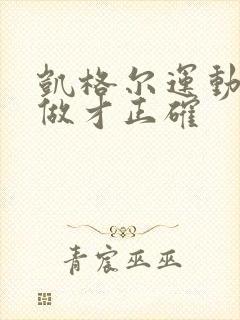 凯格尔運動
做才正確
青宸巫巫